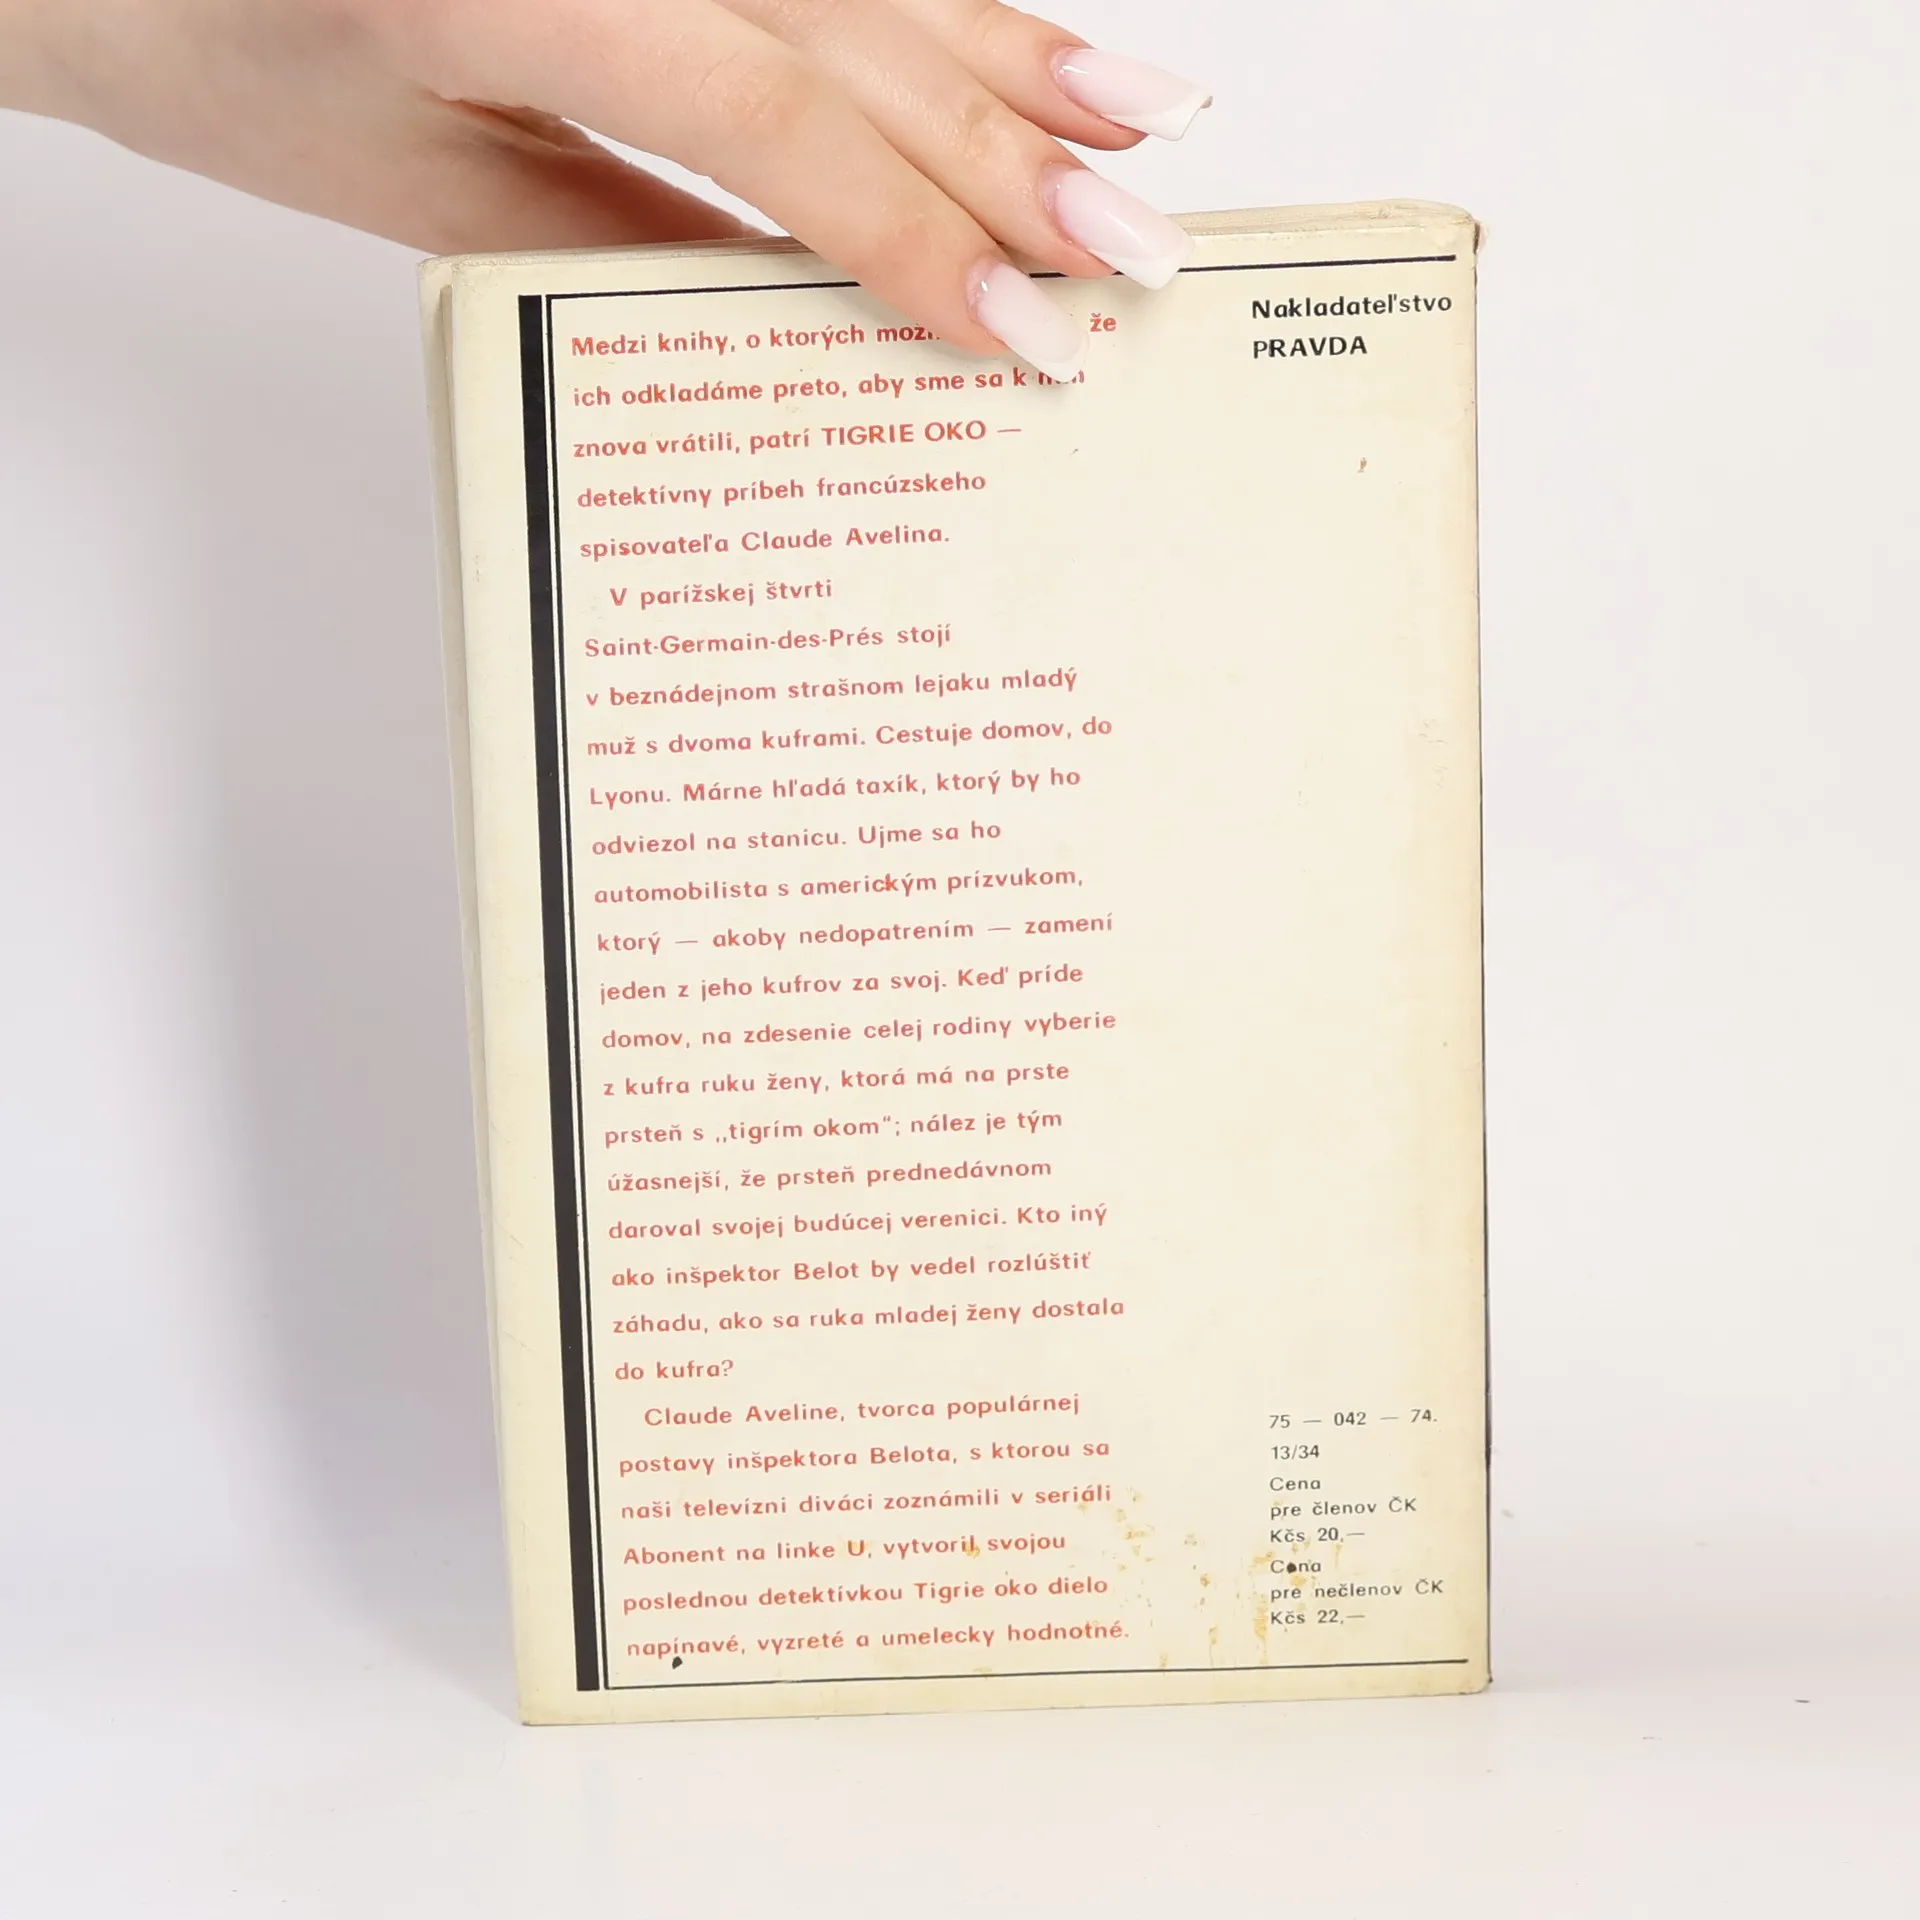 Medzi knihy, o ktorých že
ich odkladáme preto, aby sme sa k
znova vrátili, patrí TIGRIE OKO —
detektívny príbeh francúzskeho
spisovateľa Claude Avelina.
V parížskej štvrti
Saint-Germain-des-Prés stojí
v beznádejnom strašnom lejaku mladý
muž s dvoma kuframi. Cestuje domov, do
Lyonu. Márne hľadá taxík, ktorý by ho
odviezol na stanicu. Ujme sa ho
automobilista s americkým prízvukom,
ktorý — akoby nedopatrením — zamení
jeden z jeho kufrov za svoj. Keď príde
domov, na zdesenie celej rodiny vyberie
z kufra ruku ženy, ktorá má na prste
prsteň s „tigrím okom“; nález je tým
úžasnejší, že prsteň prednedávnom
daroval svojej budúcej verenici. Kto iný
ako inšpektor Belot by vedel rozlúštiť
záhadu, ako sa ruka mladej ženy dostala
do kufra?
Claude Aveline, tvorca populárnej
postavy inšpektora Belota, s ktorou sa
naši televízni diváci zoznámili v seriáli
Abonent na linke U, vytvoril svojou
poslednou detektívkou Tigrie oko dielo
napínavé, vyzreté a umelecky hodnotné.
Nakladateľstvo
PRAVDA
75 — 042 — 74.
13/34
Cena
pre členov ČK
Kčs 20,—
Cena
pre nečlenov ČK
Kčs 22,—